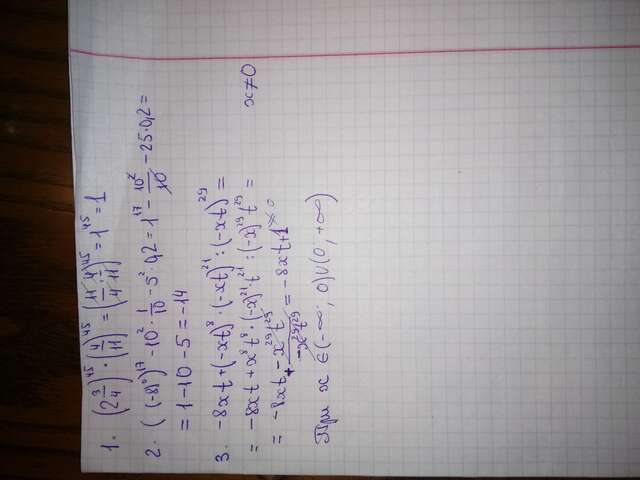 1. (2 3/4)^45 · (4/11)^45 = (11/4 · 4/11)^45 = 1^45 = 1
2. ((-8)^0)^17 - 10^2 · 1/10 - 5^2 · 0,2 = 1^17 - 10^2/10 - 25·0,2 =
= 1-10-5 = -14
3. -8xt+(-xt)^8 · (-xt)^21 : (-xt)^29 =
= -8xt + x^8t^8 · (-x)^21 · t^21 : (-x)^29 t^29 = x≠0
= -8xt + -x^29t^29/-x^29t^29 = -8xt+1
При x ∈ (-∞; 0)∪(0; +∞)